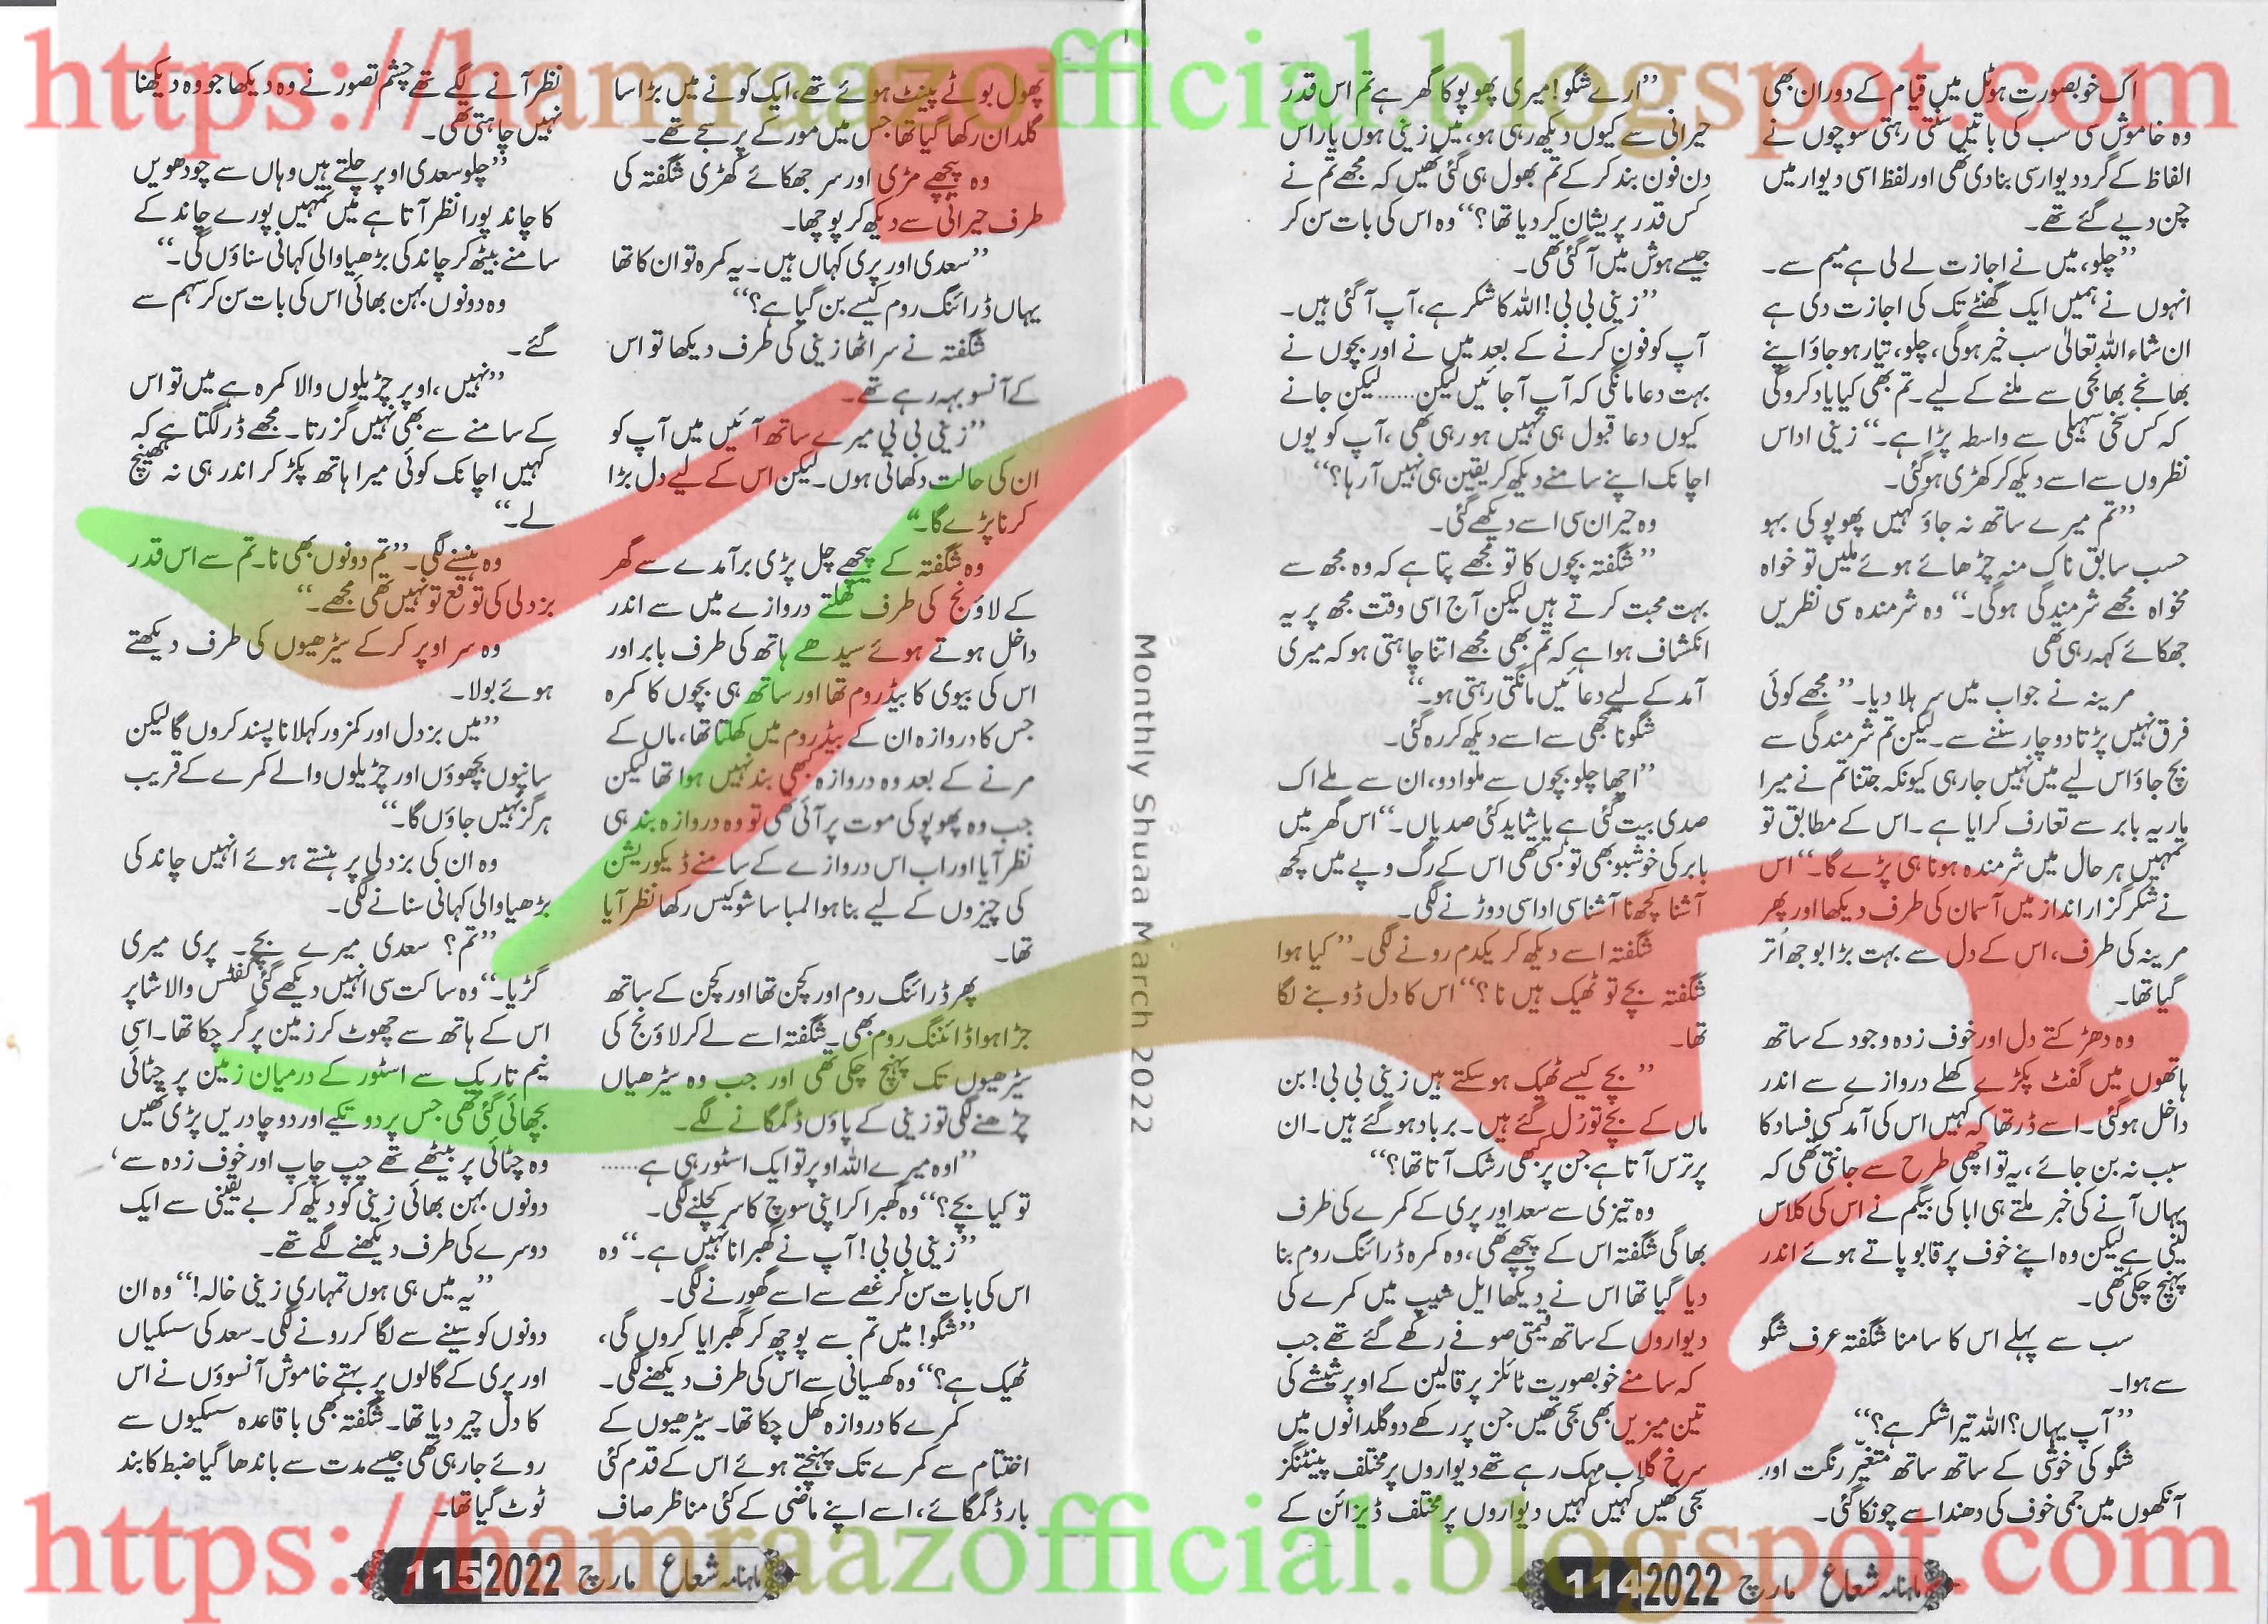 https://hamraazofficial.blogspot.com
اک خوبصورت ہوٹل میں قیام کے دوران بھی
وہ خاموش سی سب کی باتیں سنتی رہتی سوچوں نے
الفاظ کے گرد دیوار سی بنا دی تھی اور لفظ اسی دیوار میں
چن دیے گئے تھے۔
’’چلو، میں نے اجازت لے لی ہے میم سے۔
انہوں نے ہمیں ایک گھنٹے تک کی اجازت دی ہے
ان شاء اللہ تعالیٰ سب خیر ہوگی، چلو، تیار ہو جاؤ اپنے
بھانجے بھانجی سے ملنے کے لیے۔ تم بھی کیا یاد کرو گی
کہ کس سخی سہیلی سے واسطہ پڑا ہے۔‘‘ زینی اداس
نظروں سے اسے دیکھ کر کھڑی ہوگئی۔
’’تم میرے ساتھ نہ جاؤ کہیں پھوپو کی بہو
حسب سابق ناک منہ چڑھائے ہوئے ملیں تو خواہ
مخواہ مجھے شرمندگی ہوگی۔‘‘ وہ شرمندہ سی نظریں
جھکائے کہہ رہی تھی
مرینہ نے جواب میں سر ہلا دیا۔ ’’مجھے کوئی
فرق نہیں پڑتا دو چار سننے سے۔ لیکن تم شرمندگی سے
بچ جاؤ اس لیے میں نہیں جا رہی کیونکہ جتنا تم نے میرا
ماریہ بابر سے تعارف کرایا ہے۔ اس کے مطابق تو
تمہیں ہر حال میں شرمندہ ہونا ہی پڑے گا۔‘‘ اس
نے شکر گزار انداز میں آسمان کی طرف دیکھا اور پھر
مرینہ کی طرف، اس کے دل سے بہت بڑا بوجھ اُتر
گیا تھا۔
وہ دھڑکتے دل اور خوف زدہ وجود کے ساتھ
ہاتھوں میں گفٹ پکڑے کھلے دروازے سے اندر
داخل ہوگئی۔ اسے ڈر تھا کہ کہیں اس کی آمد کسی فساد کا
سبب نہ بن جائے، یہ تو اچھی طرح سے جانتی تھی کہ
یہاں آنے کی خبر ملتے ہی ابا کی بیگم نے اس کی کلاس
لینی ہے لیکن وہ اپنے خوف پر قابو پاتے ہوئے اندر
پہنچ چکی تھی۔
سب سے پہلے اس کا سامنا شگفتہ عرف شگو
سے ہوا۔
’’آپ یہاں؟ اللہ تیرا شکر ہے؟‘‘
شگو کی خوشی کے ساتھ ساتھ متغیّر رنگت اور
آنکھوں میں جمی خوف کی دھند اسے چونکا گئی۔
’’ارے شگو! میری پھوپو کا گھر ہے تم اس قدر
حیرانی سے کیوں دیکھ رہی ہو، میں زینی ہوں یار اس
دن فون بند کر کے تم بھول ہی گئی تھیں کہ مجھے تم نے
کس قدر پریشان کر دیا تھا؟‘‘ وہ اس کی بات سن کر
جیسے ہوش میں آ گئی تھی۔
’’زینی بی بی! اللہ کا شکر ہے، آپ آ گئی ہیں۔
آپ کو فون کرنے کے بعد میں نے اور بچوں نے
بہت دعا مانگی کہ آپ آ جائیں لیکن...... لیکن جانے
کیوں دعا قبول ہی نہیں ہو رہی تھی، آپ کو یوں
اچانک اپنے سامنے دیکھ کر یقین ہی نہیں آ رہا؟‘‘
وہ حیران سی اسے دیکھے گئی۔
’’شگفتہ بچوں کا تو مجھے پتا ہے کہ وہ مجھ سے
بہت محبت کرتے ہیں لیکن آج اسی وقت مجھ پر یہ
انکشاف ہوا ہے کہ تم بھی مجھے اتنا چاہتی ہو کہ میری
آمد کے لیے دعائیں مانگتی رہتی ہو۔‘‘
شگو ناسمجھی سے اسے دیکھ کر رہ گئی۔
’’اچھا چلو بچوں سے ملوا دو، ان سے ملے اک
صدی بیت گئی ہے یا شاید کئی صدیاں۔‘‘ اس گھر میں
بابر کی خوشبو بھی تو بسی تھی اس کے رگ و پے میں کچھ
آشنا کچھ نا آشنا سی اداسی دوڑنے لگی۔
شگفتہ اسے دیکھ کر یکدم رونے لگی۔ ’’کیا ہوا
شگفتہ بچے تو ٹھیک ہیں نا؟‘‘ اس کا دل ڈوبنے لگا
تھا۔
’’بچے کیسے ٹھیک ہو سکتے ہیں زینی بی بی! بن
ماں کے بچے تو رُل گئے ہیں۔ برباد ہو گئے ہیں۔ ان
پر ترس آتا ہے جن پر کبھی رشک آتا تھا؟‘‘
وہ تیزی سے سعد اور پری کے کمرے کی طرف
بھاگی شگفتہ اس کے پیچھے تھی، وہ کمرہ ڈرائنگ روم بنا
دیا گیا تھا اس نے دیکھا ایل شیپ میں کمرے کی
دیواروں کے ساتھ قیمتی صوفے رکھے گئے تھے جب
کہ سامنے خوبصورت ٹائلز پر قالین کے اوپر شیشے کی
تین میزیں بھی سجی تھیں جن پر رکھے دو گلدانوں میں
سرخ گلاب مہک رہے تھے دیواروں پر مختلف پینٹنگز
سجی تھیں کہیں کہیں دیواروں پر مختلف ڈیزائن کے
ماہنامہ شعاع مارچ 2022 114
Monthly Shuaa March 2022
پھول بوٹے پینٹ ہوئے تھے، ایک کونے میں بڑا سا
گلدان رکھا گیا تھا جس میں مور کے پر سجے تھے۔
وہ پیچھے مڑی اور سر جھکائے کھڑی شگفتہ کی
طرف حیرانی سے دیکھ کر پوچھا۔
’’سعدی اور پری کہاں ہیں۔ یہ کمرہ تو ان کا تھا
یہاں ڈرائنگ روم کیسے بن گیا ہے؟‘‘
شگفتہ نے سر اٹھا زینی کی طرف دیکھا تو اس
کے آنسو بہہ رہے تھے۔
’’زینی بی بی میرے ساتھ آئیں میں آپ کو
ان کی حالت دکھاتی ہوں۔ لیکن اس کے لیے دل بڑا
کرنا پڑے گا۔‘‘
وہ شگفتہ کے پیچھے چل پڑی برآمدے سے گھر
کے لاؤنج کی طرف کھلتے دروازے میں سے اندر
داخل ہوتے ہوئے سیدھے ہاتھ کی طرف بابر اور
اس کی بیوی کا بیڈ روم تھا اور ساتھ ہی بچوں کا کمرہ
جس کا دروازہ ان کے بیڈ روم میں کھلتا تھا، ماں کے
مرنے کے بعد وہ دروازہ کبھی بند نہیں ہوا تھا لیکن
جب وہ پھوپو کی موت پر آئی تھی تو وہ دروازہ بند ہی
نظر آیا اور اب اس دروازے کے سامنے ڈیکوریشن
کی چیزوں کے لیے بنا ہوا لمبا سا شوکیس رکھا نظر آیا
تھا۔
پھر ڈرائنگ روم اور کچن تھا اور کچن کے ساتھ
جڑا ہوا ڈائننگ روم بھی۔ شگفتہ اسے لے کر لاؤنج کی
سیڑھیوں تک پہنچ چکی تھی اور جب وہ سیڑھیاں
چڑھنے لگی تو زینی کے پاؤں ڈگمگانے لگے۔
’’اوہ میرے اللہ اوپر تو ایک اسٹور ہی ہے......
تو کیا بچے؟‘‘ وہ گھبرا کر اپنی سوچ کا سر کچلنے لگی۔
’’زینی بی بی! آپ نے گھبرانا نہیں ہے۔‘‘ وہ
اس کی بات سن کر غصے سے اسے گھورنے لگی۔
’’شگو! میں تم سے پوچھ کر گھبرایا کروں گی،
ٹھیک ہے؟‘‘ وہ کھسیانی سے اس کی طرف دیکھنے لگی۔
کمرے کا دروازہ کھل چکا تھا۔ سیڑھیوں کے
اختتام سے کمرے تک پہنچتے ہوئے اس کے قدم کئی
بار ڈگمگائے، اسے اپنے ماضی کے کئی مناظر صاف
نظر آنے لگے تھے چشم تصور نے وہ دیکھا جو وہ دیکھنا
نہیں چاہتی تھی۔
’’چلو سعدی اوپر چلتے ہیں وہاں سے چودھویں
کا چاند پورا نظر آتا ہے میں تمہیں پورے چاند کے
سامنے بیٹھ کر چاند کی بڑھیا والی کہانی سناؤں گی۔‘‘
وہ دونوں بہن بھائی اس کی بات سن کر سہم سے
گئے۔
’’نہیں، اوپر چڑیلوں والا کمرہ ہے میں تو اس
کے سامنے سے بھی نہیں گزرتا۔ مجھے ڈر لگتا ہے کہ
کہیں اچانک کوئی میرا ہاتھ پکڑ کر اندر ہی نہ کھینچ
لے۔‘‘
وہ ہنسنے لگی۔ ’’تم دونوں بھی نا۔ تم سے اس قدر
بزدلی کی توقع تو نہیں تھی مجھے۔‘‘
وہ سر اوپر کر کے سیڑھیوں کی طرف دیکھتے
ہوئے بولا۔
’’میں بزدل اور کمزور کہلانا پسند کروں گا لیکن
سانپوں بچھوؤں اور چڑیلوں والے کمرے کے قریب
ہرگز نہیں جاؤں گا۔‘‘
وہ ان کی بزدلی پر ہنستے ہوئے انہیں چاند کی
بڑھیا والی کہانی سنانے لگی۔
’’تم؟ سعدی میرے بچے۔ پری میری
گڑیا۔‘‘ وہ ساکت سی انہیں دیکھے گئی گفٹس والا شاپر
اس کے ہاتھ سے چھوٹ کر زمین پر گر چکا تھا۔ اسی
نیم تاریک سے اسٹور کے درمیان زمین پر چٹائی
بچھائی گئی تھی جس پر دو تکیے اور دو چادریں پڑی تھیں
وہ چٹائی پر بیٹھے تھے چپ چاپ اور خوف زدہ سے،
دونوں بہن بھائی زینی کو دیکھ کر بے یقینی سے ایک
دوسرے کی طرف دیکھنے لگے تھے۔
’’یہ میں ہی ہوں تمہاری زینی خالہ!‘‘ وہ ان
دونوں کو سینے سے لگا کر رونے لگی۔ سعد کی سسکیاں
اور پری کے گالوں پر بہتے خاموش آنسوؤں نے اس
کا دل چیر دیا تھا۔ شگفتہ بھی باقاعدہ سسکیوں سے
روئے جا رہی تھی جیسے مدت سے باندھا گیا ضبط کا بند
ٹوٹ گیا تھا۔
ماہنامہ شعاع مارچ 2022 115
https://hamraazofficial.blogspot.com